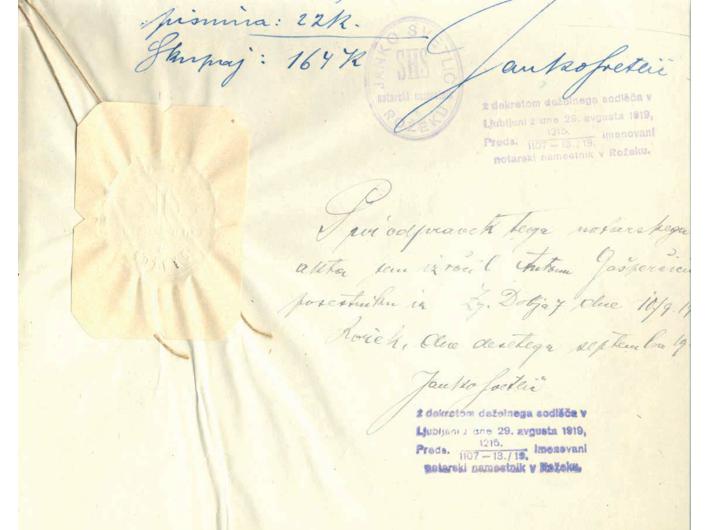 pismina: 22K.
Skupaj: 164 K
JANKO SVETLIČ
SHS
notarski namestnik
ROŽEKU
Janko Svetlič
z dekretom deželnega sodišča v
Ljubljani z dne 29. avgusta 1919,
Preds. 1215. / 1107 – 13./19. imenovani
notarski namestnik v Rožeku.
Prvi odpravek tega notarskega
akta sem izročil Antonu Gašperšiču
posestniku iz Zg. Dobja 7 dne 10/9. 19
Rožek, dne desetega septembra 19
Janko Svetlič
z dekretom deželnega sodišča v
Ljubljani z dne 29. avgusta 1919,
Preds. 1215. / 1107 – 13./19. imenovani
notarski namestnik v Rožeku.